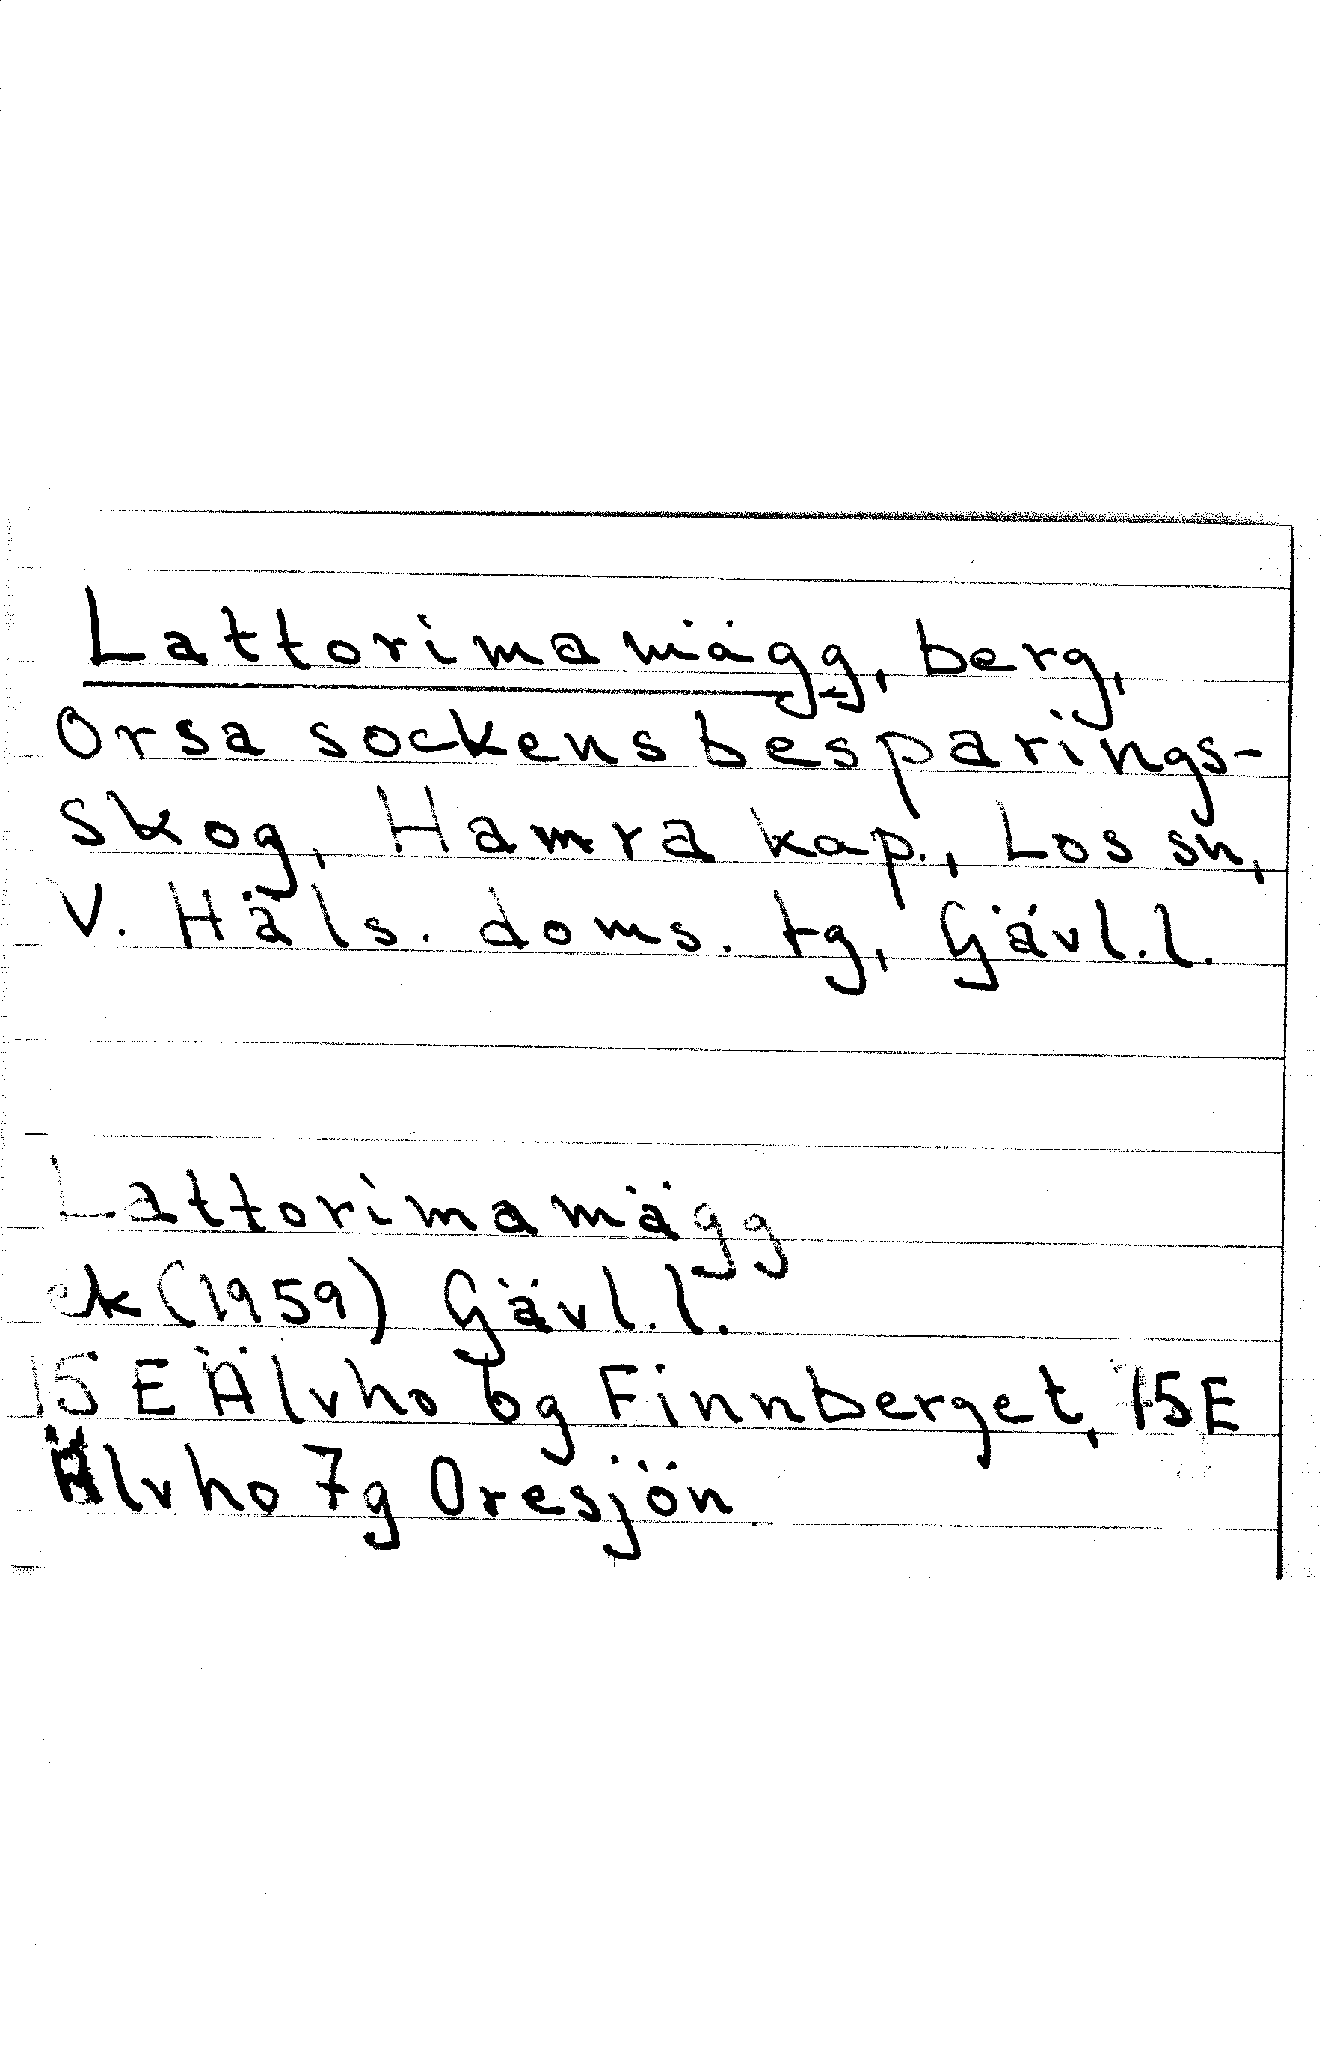 Lattorimamägg, berg,
Orsa sockens besparings-
skog, Hamra kap., Los sn,
V. Häls. doms. tg, Gävl.l.
Lattorimamägg
ek (1959) Gävl.l.
15 E Älvho 6g Finnberget, 15E
Älvho 7g Oresjön